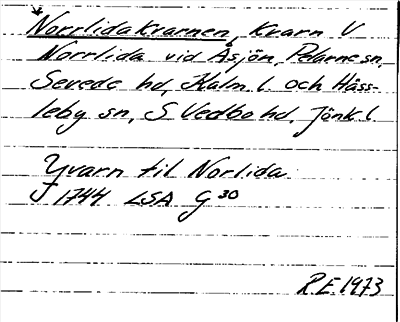 Norrlidakvarnen, kvarn V
Norrlida vid Åsjön, Pelarne sn,
Sevede hd, Kalm. l. och Häss-
leby sn, S Vedbo hd, Jönk. l
Qvarn til Norlida
1744 LSA G 30
R.E. 1973